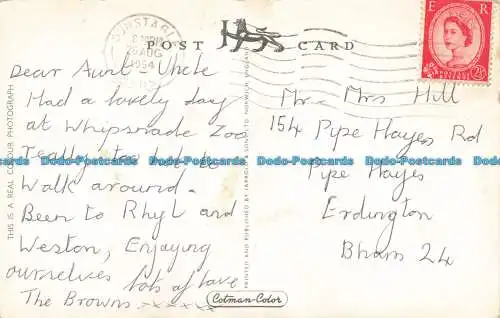 DUNSTABLE
26 AUG
1964
POST CARD
E R
2½D
Dear Aunt Uncle
Had a lovely day
at Whipsnade Zoo
Really too hot to
Walk around.
Been to Rhyl and
Weston, Enjoying
ourselves lots of love
The Browns. xxxxx
Mr. Mrs Hill
154 Pipe Hayes Rd
Pipe Hayes
Erdington
Bham 24
THIS IS A REAL COLOUR PHOTOGRAPH
PRINTED AND PUBLISHED BY JARROLD & SONS LTD NORWICH ENGLAND
Cotman-Color
Dodo-Postcards.com Dodo-Postcards.com Dodo-Postcards.com Dodo-Postcards.com